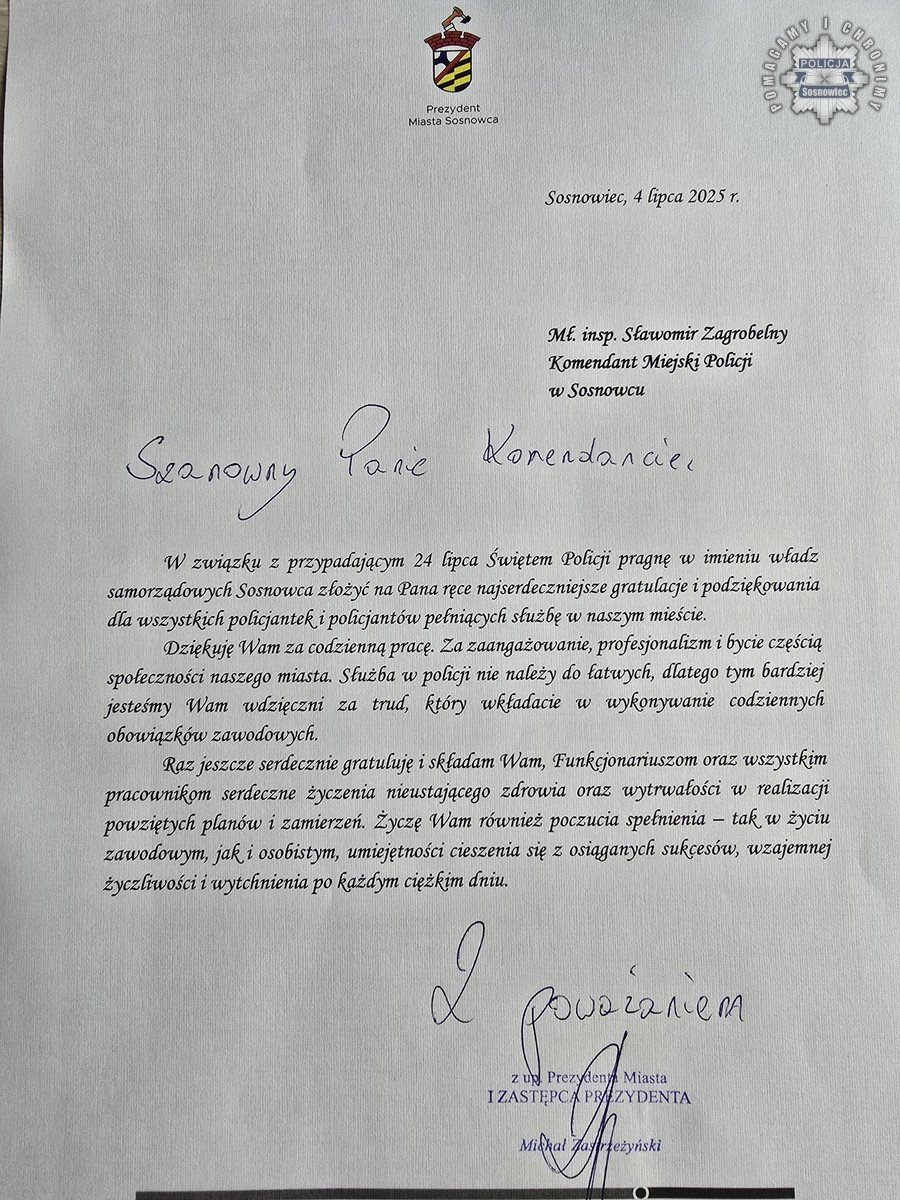 Prezydent
Miasta Sosnowca
POMAGAMY I CHRONIMY
POLICJA
Sosnowiec
Sosnowiec, 4 lipca 2025 r.
Mł. insp. Sławomir Zagrobelny
Komendant Miejski Policji
w Sosnowcu
Szanowny Panie Komendancie,
W związku z przypadającym 24 lipca Świętem Policji pragnę w imieniu władz
samorządowych Sosnowca złożyć na Pana ręce najserdeczniejsze gratulacje i podziękowania
dla wszystkich policjantek i policjantów pełniących służbę w naszym mieście.
Dziękuję Wam za codzienną pracę. Za zaangażowanie, profesjonalizm i bycie częścią
społeczności naszego miasta. Służba w policji nie należy do łatwych, dlatego tym bardziej
jesteśmy Wam wdzięczni za trud, który wkładacie w wykonywanie codziennych
obowiązków zawodowych.
Raz jeszcze serdecznie gratuluję i składam Wam, Funkcjonariuszom oraz wszystkim
pracownikom serdeczne życzenia nieustającego zdrowia oraz wytrwałości w realizacji
powziętych planów i zamierzeń. Życzę Wam również poczucia spełnienia – tak w życiu
zawodowym, jak i osobistym, umiejętności cieszenia się z osiąganych sukcesów, wzajemnej
życzliwości i wytchnienia po każdym ciężkim dniu.
Z poważaniem
z up. Prezydenta Miasta
I ZASTĘPCA PREZYDENTA
Michał Zastrzeżyński